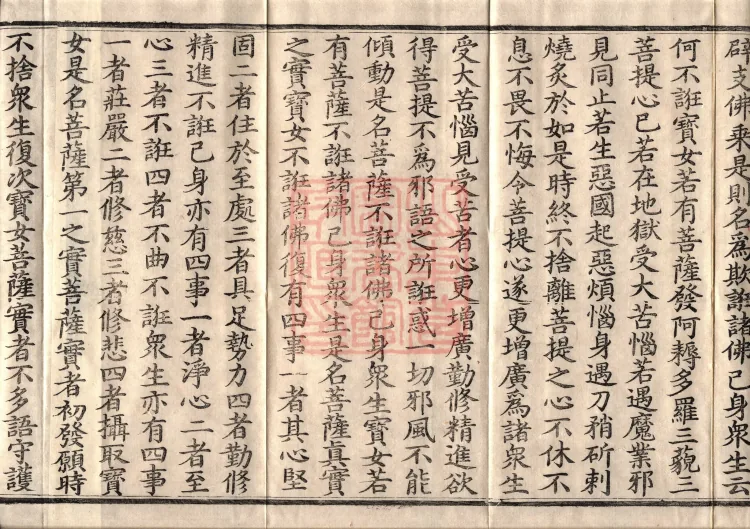 辟支佛乘是則名為欺誑諸佛己身衆生云
何不誑寶女若有菩薩發阿耨多羅三藐三
菩提心已若在地獄受大苦惱若遇魔業邪
見同止若生惡國起惡煩惱身遇刀矟斫刺
燒炙於如是時終不捨離菩提之心不休不
息不畏不悔令菩提心遂更增廣爲諸衆生
受大苦惱見受苦者心更增廣勤修精進欲
得菩提不爲邪語之所誑惑一切邪風不能
傾動是名菩薩不誑諸佛己身衆生寶女若
有菩薩不誑諸佛己身衆生是名菩薩真實
之實寶女不誑諸佛復有四事一者其心堅
固二者住於至處三者具足勢力四者勤修
精進不誑己身亦有四事一者淨心二者至
心三者不誑四者不曲不誑衆生亦有四事
一者莊嚴二者修慈三者修悲四者攝取寶
女是名菩薩第一之實菩薩實者初發願時
不捨衆生復次寶女菩薩實者不多語守護